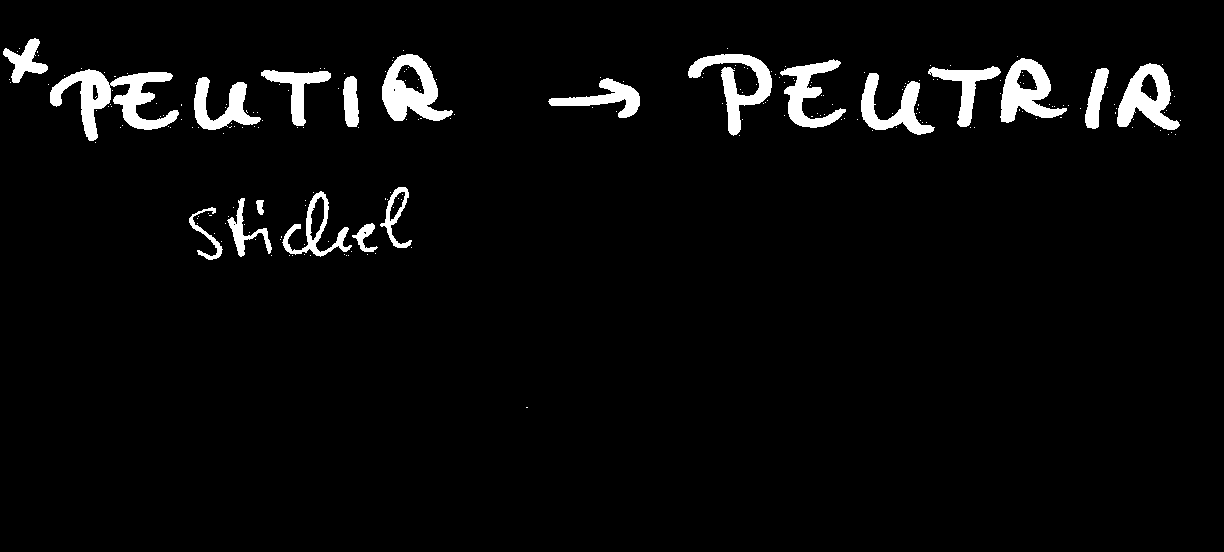 *PEUTIR → PEUTRIR
Stickel